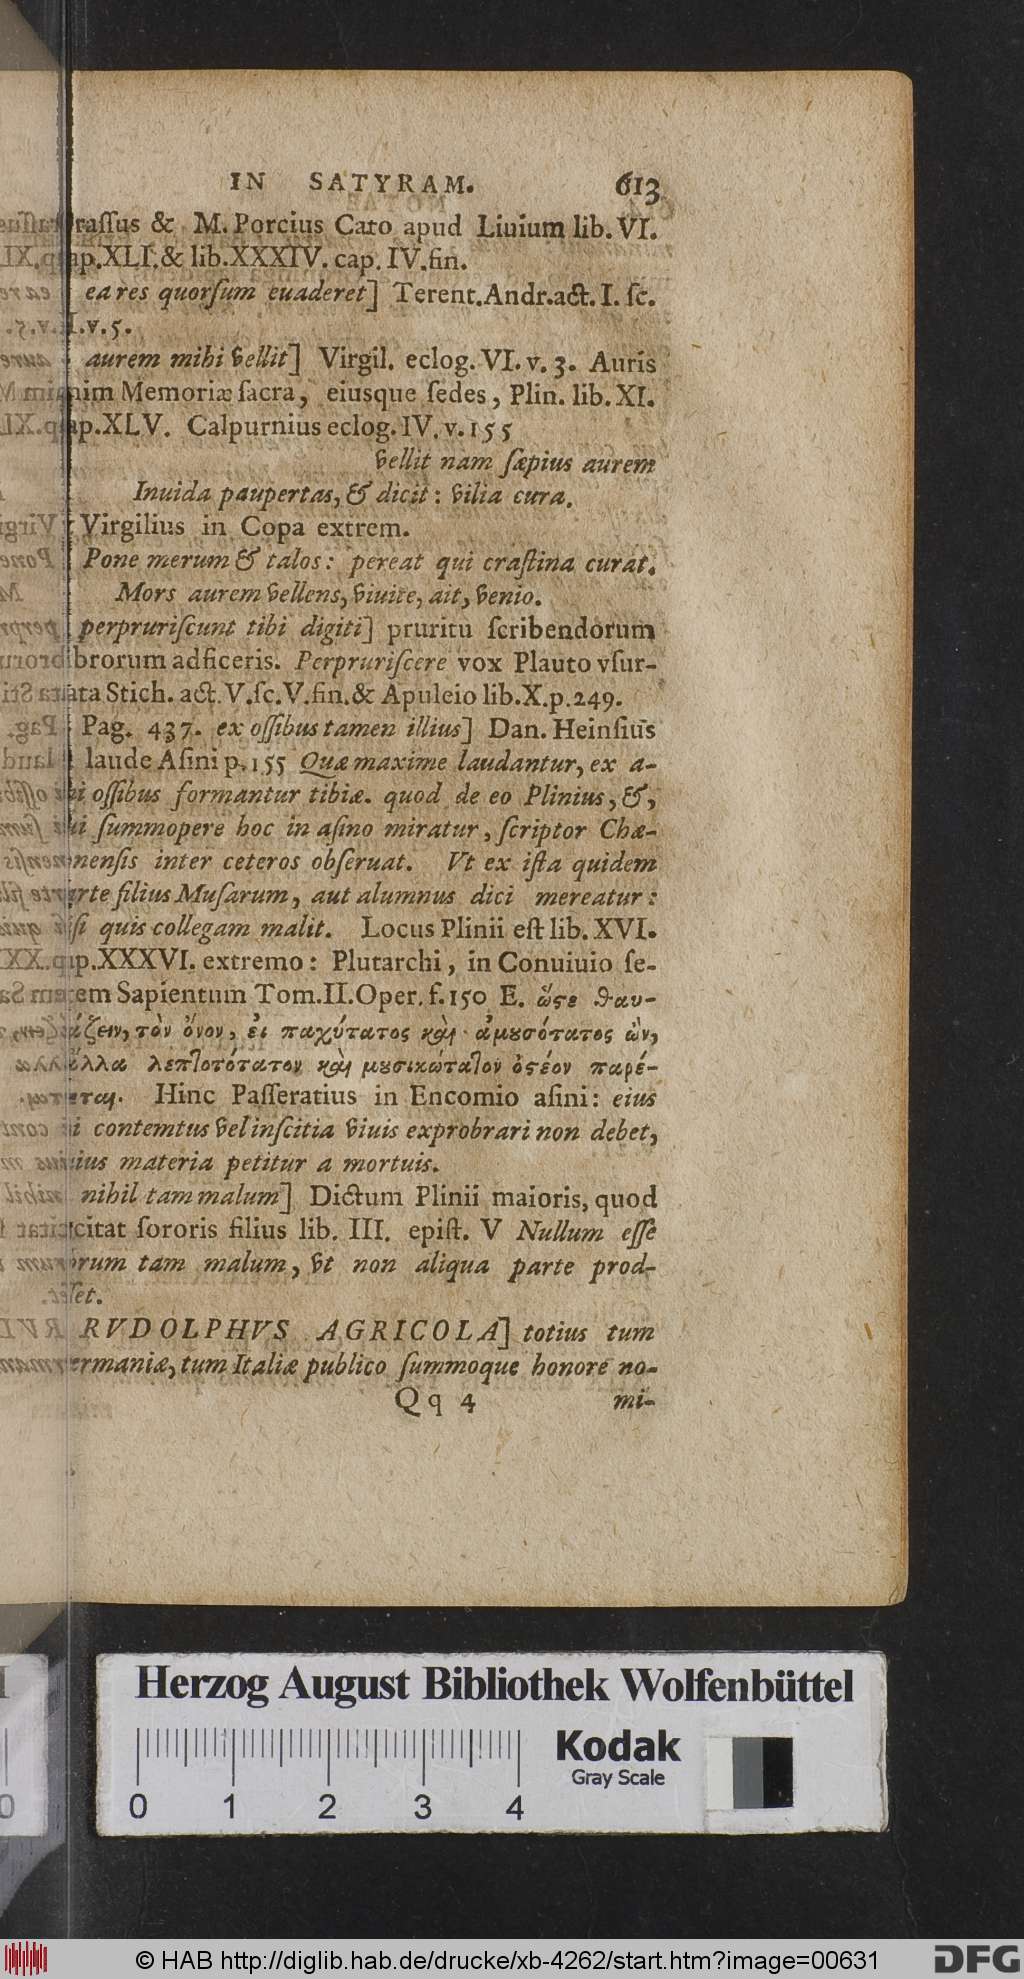 IN SATYRAM. 613
raſſus & M. Porcius Cato apud Liuium lib. VI.
ap. XLI. & lib. XXXIV. cap. IV. fin.
ea res quorſum euaderet] Terent. Andr. act. I. ſc.
I. v. 5.
aurem mihi vellit] Virgil. eclog. VI. v. 3. Auris
nim Memoriæ ſacra, eiusque ſedes, Plin. lib. XI.
ap. XLV. Calpurnius eclog. IV. v. 155
vellit nam ſæpius aurem
Inuida paupertas, & dicit: vilia cura.
Virgilius in Copa extrem.
Pone merum & talos: pereat qui craſtina curat.
Mors aurem vellens, viuite, ait, venio.
perpruriſcunt tibi digiti] pruritu ſcribendorum
brorum adficeris. Perpruriſcere vox Plauto vſur-
ata Stich. act. V. ſc. V. fin. & Apuleio lib. X. p. 249.
Pag. 437. ex oſſibus tamen illius] Dan. Heinſius
laude Aſini p. 155 Quæ maxime laudantur, ex a-
i oſſibus formantur tibiæ. quod de eo Plinius, &,
i ſummopere hoc in aſino miratur, ſcriptor Chæ-
nenſis inter ceteros obſeruat. Vt ex iſta quidem
rte filius Muſarum, aut alumnus dici mereatur:
ſi quis collegam malit. Locus Plinii eſt lib. XVI.
p. XXXVI. extremo: Plutarchi, in Conuiuio ſe-
em Sapientum Tom. II. Oper. f. 150 E. ὥϛε θαυ-
άζειν, τὸν ὄνον, ἐι παχύτατος καὶ ἀμουσότατος ὢν,
λλα λεπτότατον καὶ μουσικώτατον ὀϛέον παρέ-
ται. Hinc Paſſeratius in Encomio aſini: eius
i contemtus vel inſcitia viuis exprobrari non debet,
ius materia petitur a mortuis.
nihil tam malum] Dictum Plinii maioris, quod
citat ſororis filius lib. III. epiſt. V Nullum eſſe
rum tam malum, vt non aliqua parte prod-
ſet.
RVDOLPHVS AGRICOLA] totius tum
ermaniæ, tum Italiæ publico ſummoque honore no-
Qq 4 mi-
Herzog August Bibliothek Wolfenbüttel
Kodak
Gray Scale
0 1 2 3 4
© HAB http://diglib.hab.de/drucke/xb-4262/start.htm?image=00631 DFG